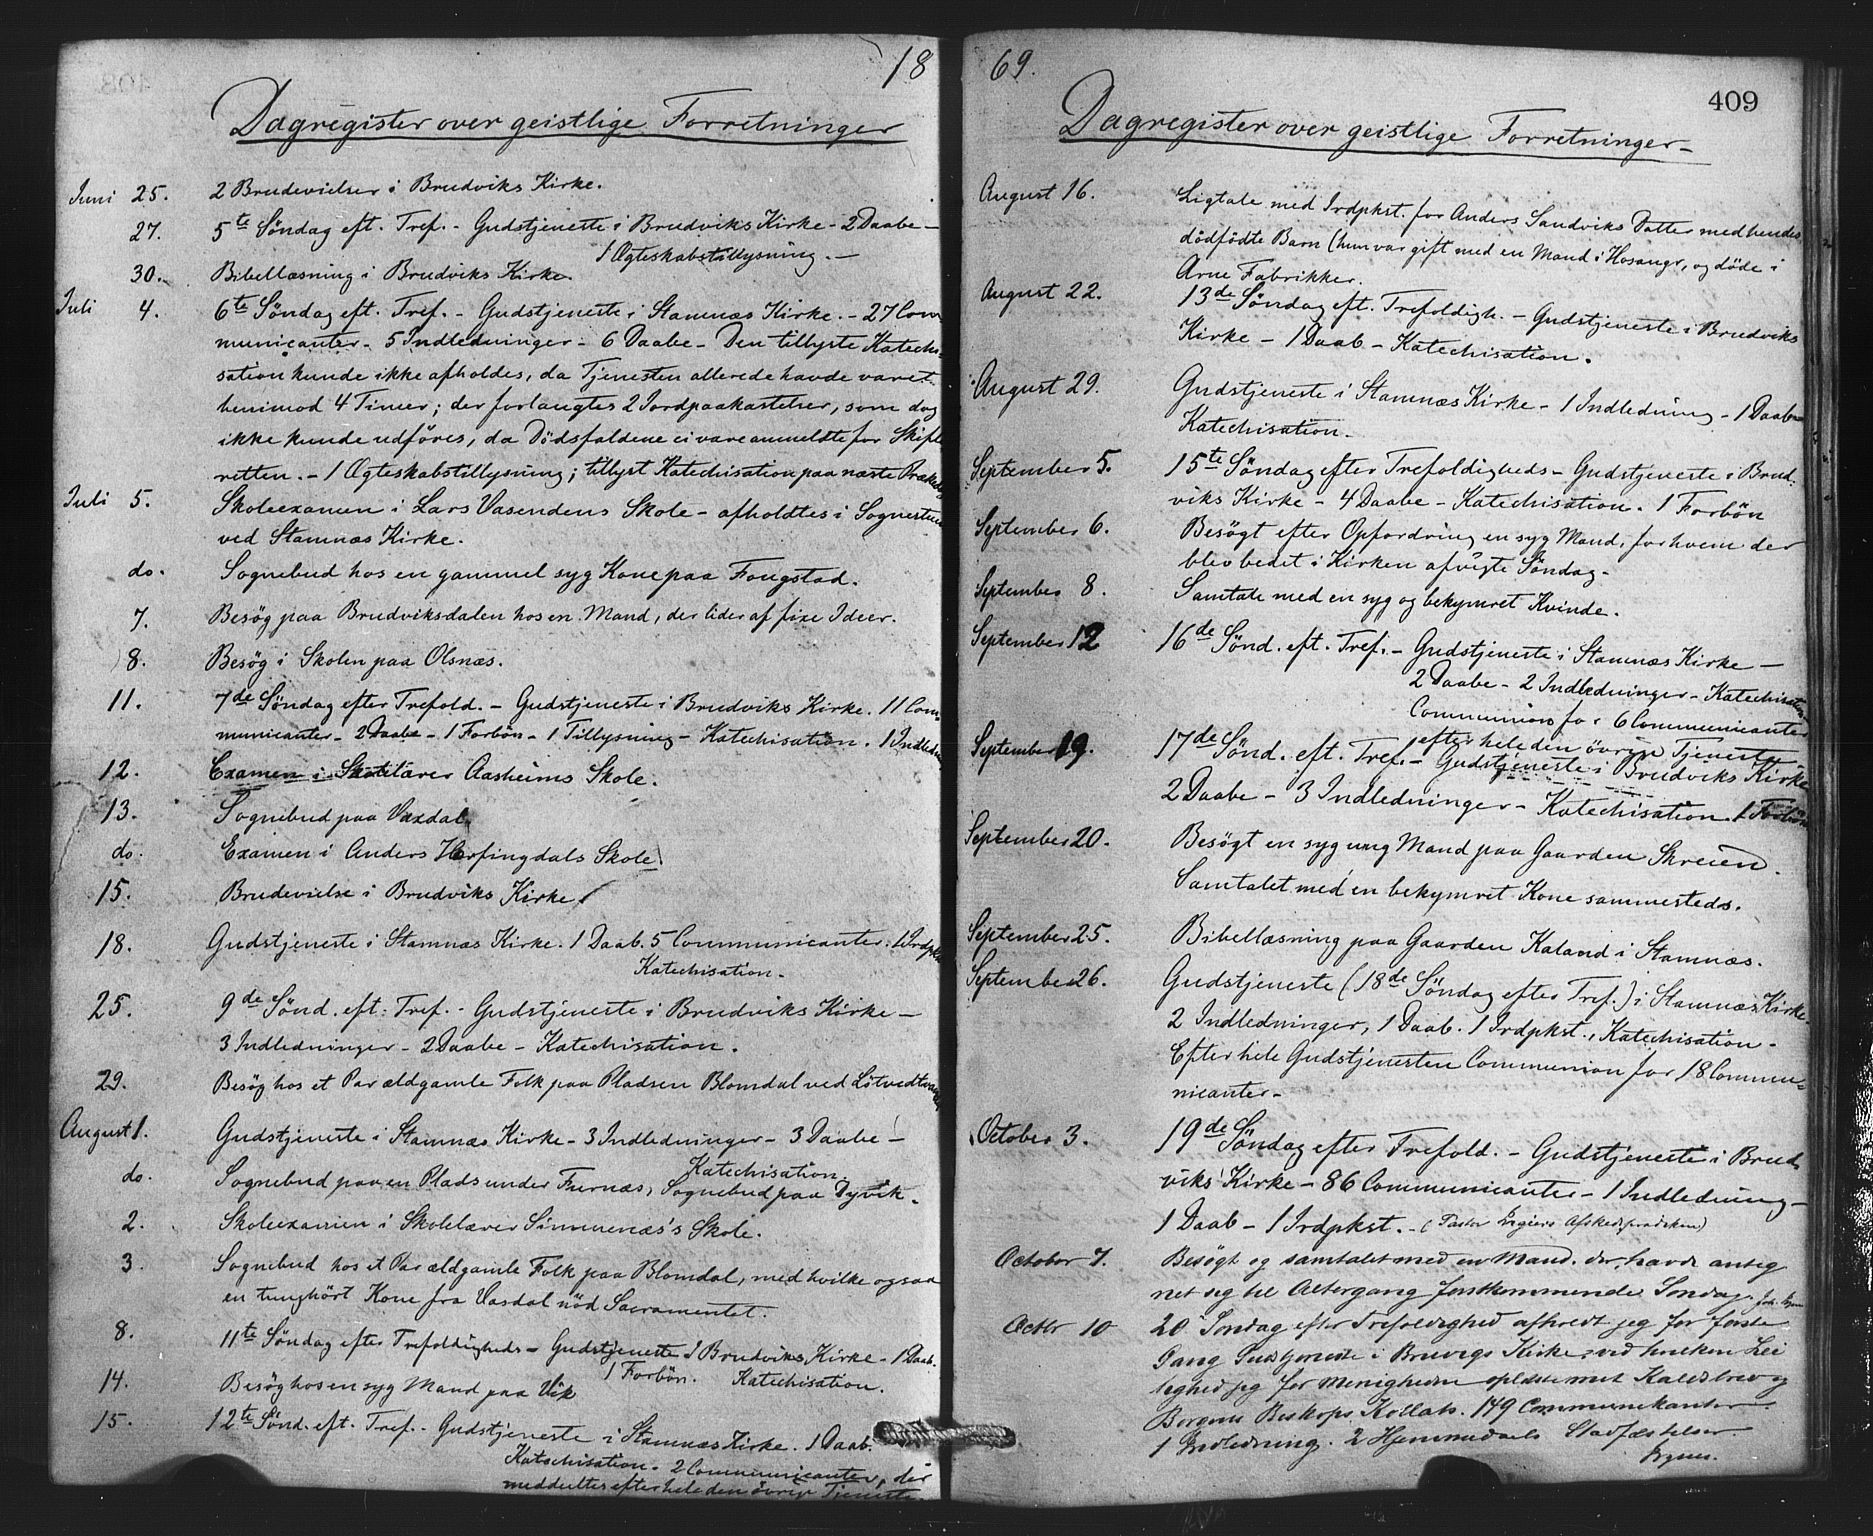 18
Dagregister over geistlige Forretninger
Juni 25. 2 Brudevielser i Brudviks Kirke.
27. 5te Søndag eft. Tref. - Gudstjeneste i Brudviks Kirke - 2 Daabe -
1 Ægteskabstillysning. -
30. Bibellæsning i Brudviks Kirke.
Juli 4. 6te Søndag eft. Tref. - Gudstjeneste i Stamnæs Kirke. - 27 Com-
municanter - 5 Indledninger - 6 Daabe - Den tillyste Katechi-
sation kunde ikke afholdes, da Tjenesten allerede havde varet
henimod 4 Timer; der forlangtes 2 Jordpaakastelser, som dog
ikke kunde udføres, da Dödsfaldene ei vare anmeldte for Skifte
retten. - 1 Ægteskabstillysning; tillyst Katechisation paa næste Præked
Juli 5. Skoleexamen i Lars Vasendens Skole - afholdtes i Sognestuen
ved Stamnæs Kirke.
do. Sognebud hos en gammel syg Kone paa Fougstad.
7. Besøg paa Brudviksdalen hos en Mand, der lider af fixe Ideer.
8. Besøg i Skolen paa Olsnæs.
11. 7de Søndag efter Trefold. - Gudstjeneste i Brudviks Kirke. 11 Com-
municanter - 2 Daabe - 1 Forbön - 1 Tillysning - Katechisation. 1 Indledn
12. Examen i Skolelærer Aasheims Skole.
13. Sognebud paa Vaxdal.
do. Examen i Anders Herfingdals Skole
15. Brudevielse i Brudviks Kirke.
18. Gudstjeneste i Stamnæs Kirke. 1 Daab. 5 Communicanter. 1 Jrdpk
Katechisation -
25. 9de Sønd. eft. Tref. - Gudstjeneste i Brudviks Kirke -
3 Indledninger - 2 Daabe - Katechisation.
29. Besög hos et Par ældgamle Folk paa Pladsen Blomdal ved
August 1. Gudstjeneste i Stamnæs Kirke - 3 Indledninger - 3 Daabe -
Katechisation
do. Sognebud paa en Plads under Furnæs, Sognebud paa Dyvik.
2. Skoleexamen i Skolelærer Simmenæs's Skole.
3. Sognebud hos et Par ældgamle Folk paa Blomdal, med hvilke ogsaa
en tunghört Kone fra Vasdal nöd Sacramentet.
8. 11te Søndag efter Trefoldigheds - Gudstjeneste i Brudviks Kirke - 1 Daab.
1 Forbön. Katechisation.
14. Besøg hos en syg Mand paa Vik
15. 12te Sönd. eft. Tref. - Gudstjeneste i Stamnæs Kirke. 1 Daab.
Katechisation. 2 Communicanter, der
meddeltes efter hele den övrige Tjeneste
69.
409
Dagregister over geistlige Forretninger -
August 16. Ligtale med Jrdpkst. for Anders Sandviks Datter med hendes
dödfödte Barn (hun var gift med en Mand i Hosanger, og döde i
Arne Fabrikker.
August 22. 13de Søndag eft. Trefoldigh. - Gudstjeneste i Brudviks
Kirke - 1 Daab - Katechisation.
August 29. Gudstjeneste i Stamnæs Kirke - 1 Indledning - 1 Daab
Katechisation.
September 5. 15te Søndag efter Trefoldigheds - Gudstjeneste i Brud-
viks Kirke - 4 Daabe - Katechisation. 1 Forbön
September 6. Besögt efter Opfordring en syg Mand, for hvem der
blev bedet i Kirken afvigte Söndag -
September 8. Samtale med en syg og bekymret Kvinde.
September 12 16de Sönd. eft. Tref. - Gudstjeneste i Stamnæs Kirke -
2 Daabe - 2 Indledninger - Katechisation
Communion for 6 Communicanter
efter hele den övrige Tjeneste -
September 19. 17de Sönd. eft. Tref. - Gudstjeneste i Brudviks Kirke
2 Daabe - 3 Indledninger - Katechisation. 1 Forbön
September 20. Besögt en syg ung Mand paa Gaarden Skreien.
Samtalet med en bekymret Kone sammesteds.
September 25. Bibellæsning paa Gaarden Kaland i Stamnæs.
September 26. Gudstjeneste (18de Söndag efter Tref.) i Stamnæs Kirke.
2 Indledninger, 1 Daab. 1 Jrdpkst., Katechisation -
Efter hele Gudstjenesten Communion for 18 Commu-
nicanter -
October 3. 19de Søndag efter Trefold. - Gudstjeneste i Brud
viks Kirke - 86 Communicanter - 1 Indledning -
1 Daab - 1 Jrdpkst. - (Pastor Afskedspræken)
October 7. Besögt og samtalet med en Mand, der havde anteg
net sig til Altergang förstkommende Söndag.
Octbr 10 20 Söndag efter Trefoldighed afholdt jeg for förste
Gang Gudstjeneste i Bruvigs Kirke, ved hvilken Lei
lighed jeg for Menigheden oplæste mit Kaldsbrev og
Bergens Biskops Kollats. 149 Communikanter
1 Indledning. 2 Hjemmedaabs Stadfæstelser